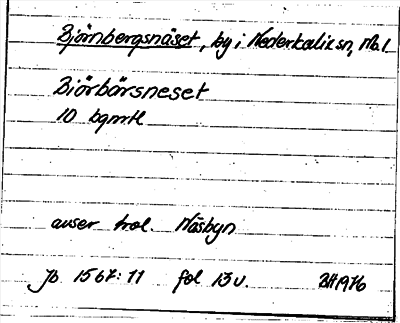 Björnbergsnäset, by i Nederkalix sn, Nb.l
Biörbärsneset
10 bgmtl
avser trol. Näsbyn
Jb 1567:11 fol 13v. BH 1976